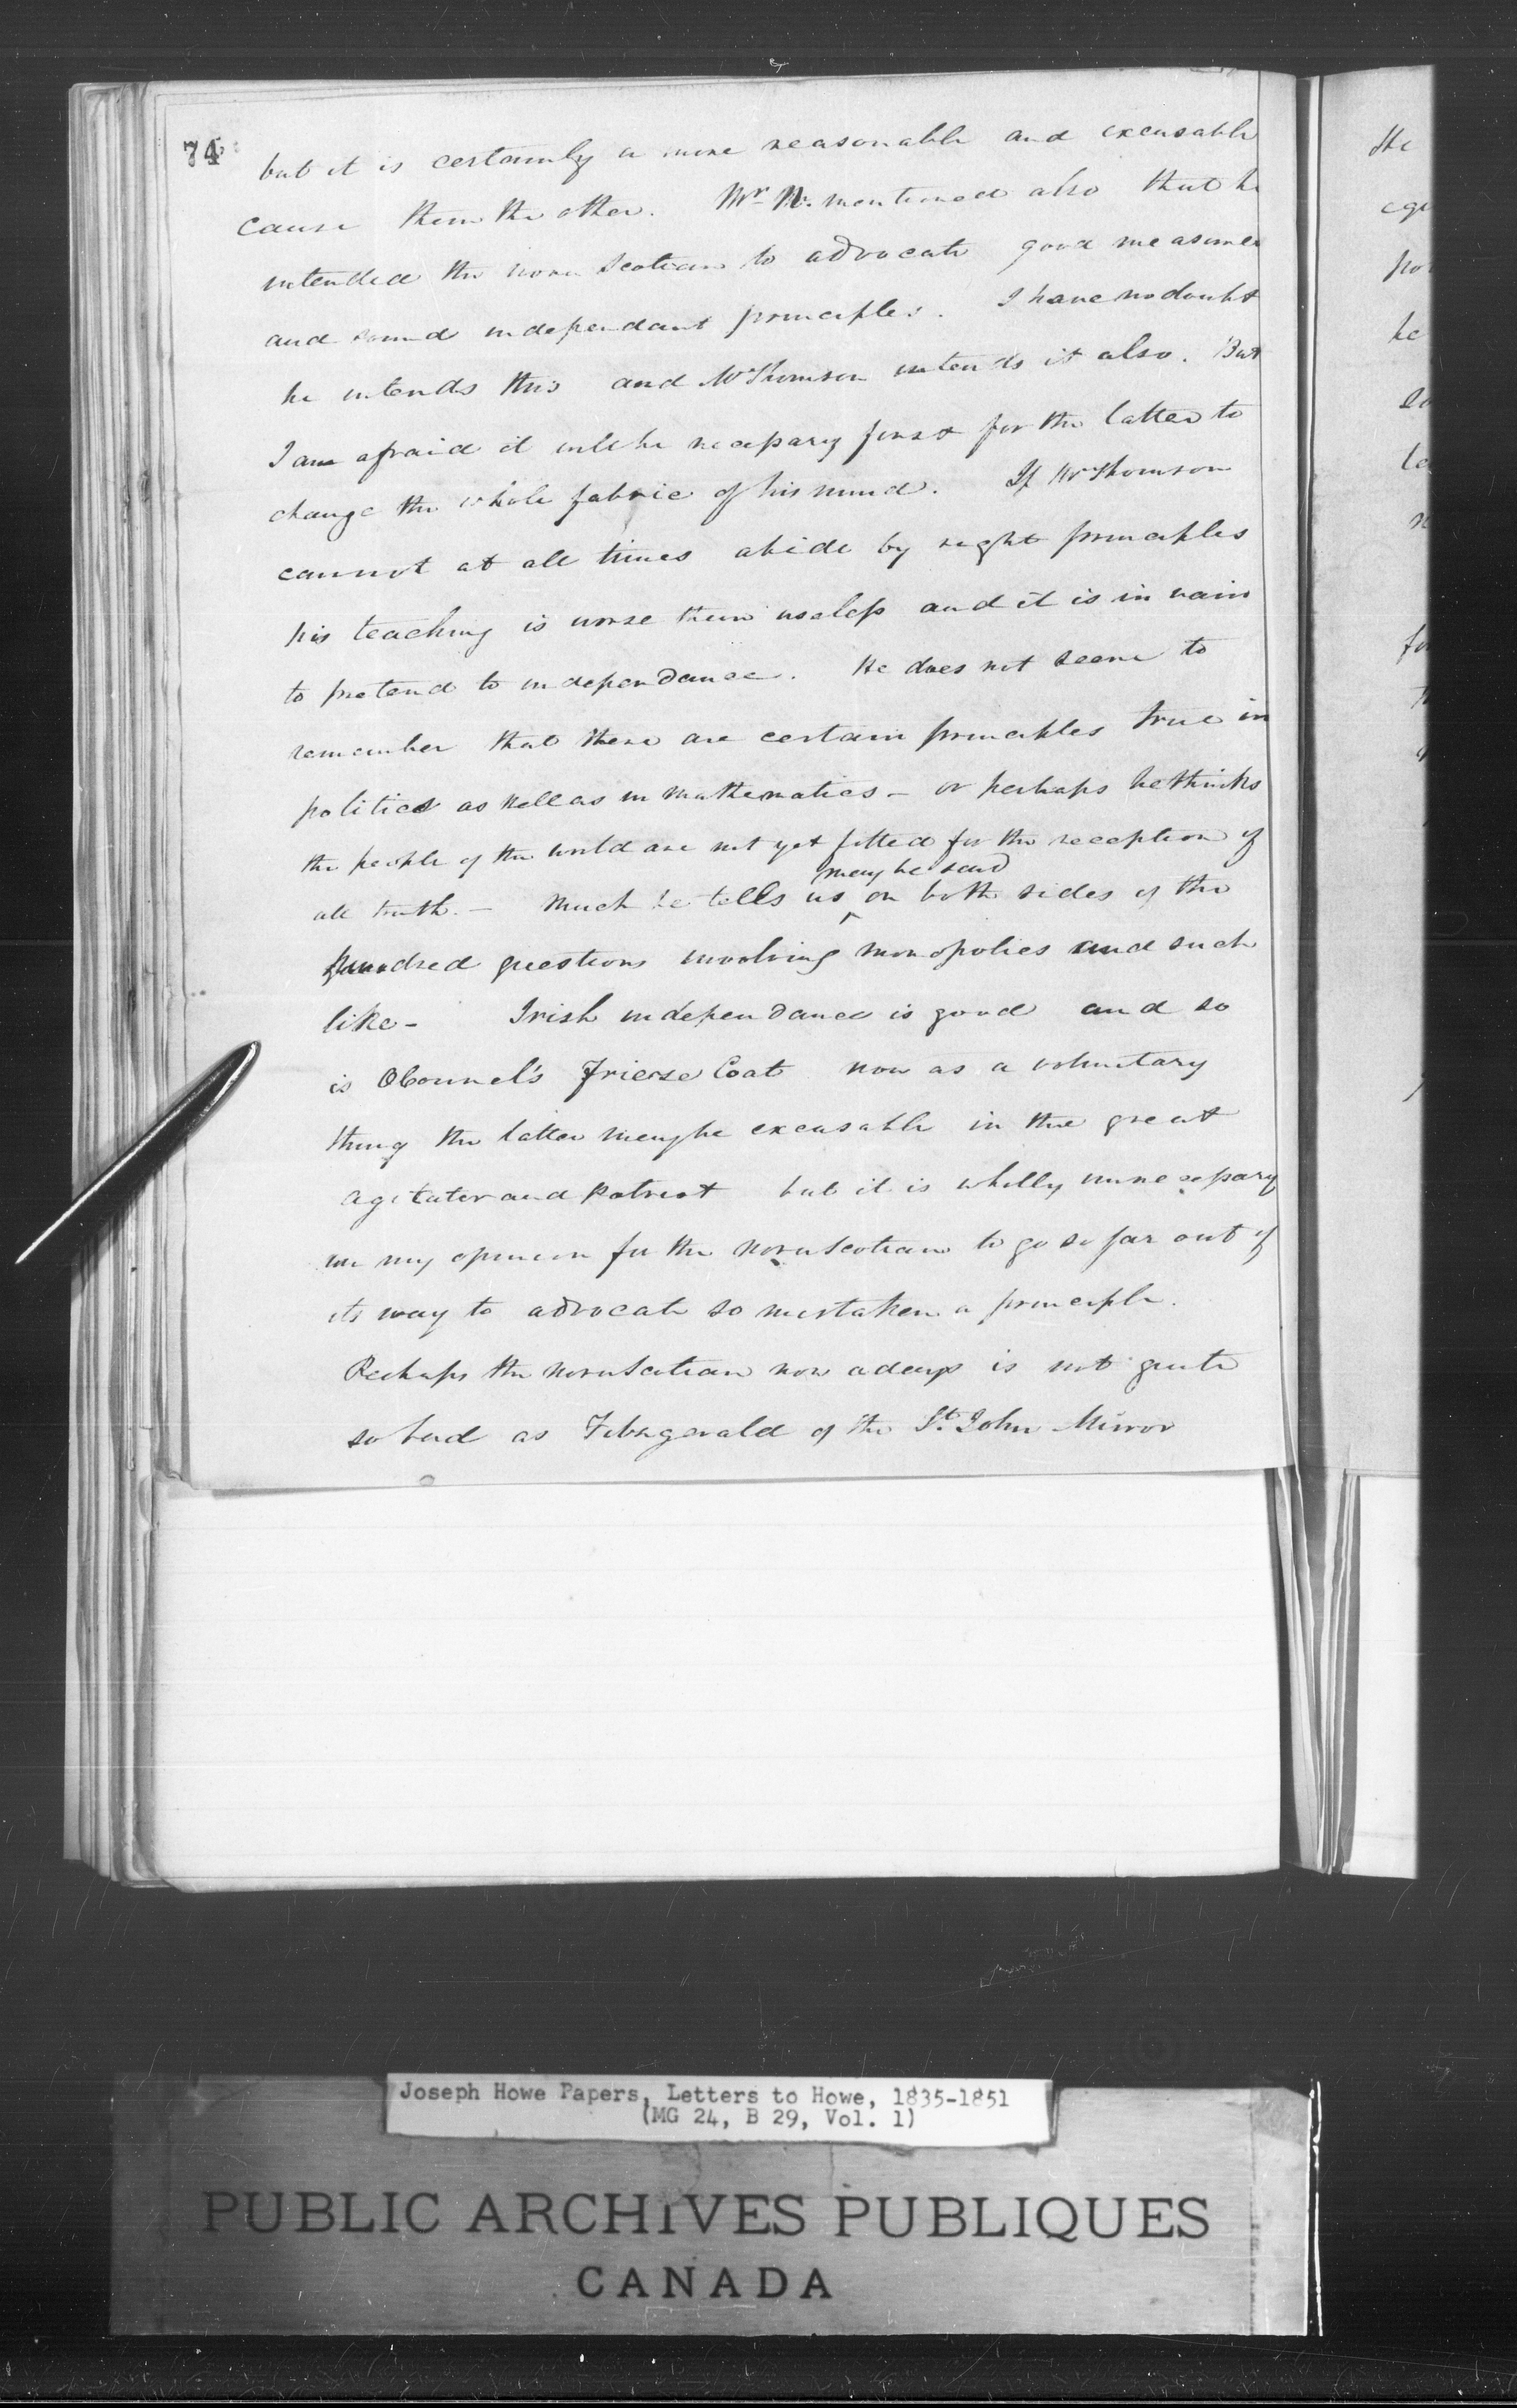 74
but it is certainly a more reasonable and excusable
cause than the other. Mr N. mentioned also that he
intended the nova Scotian to advocate good measures
and sound independant principles. I have no doubt
he intends this and Mr Thomson intends it also. But
I am afraid it will be necessary first for the latter to
change the whole fabric of his mind. If Mr Thomson
cannot at all times abide by right principles
his teaching is worse than useless and it is in vain
to pretend to independance. He does not seem to
remember that there are certain principles true in
politics as well as in mathematics - or perhaps he thinks
the people of the world are not yet fitted for the reception of
all truth. - Much he tells us may be said on both sides of the
hundred questions involving monopolies and such
like - Irish independance is good and so
is OConnel's Frieze Coat now as a voluntary
thing the latter may be excusable in the great
agitator and Patriot but it is wholly unnecessary
in my opinion for the novascotian to go so far out of
its way to advocate so mistaken a principle.
Perhaps the novascotian now adays is not quite
so bad as Fitzgerald of the St. John Mirror
He
he
Joseph Howe Papers, Letters to Howe, 1835-1851
(MG 24, B 29, Vol. 1)
PUBLIC ARCHIVES PUBLIQUES
CANADA